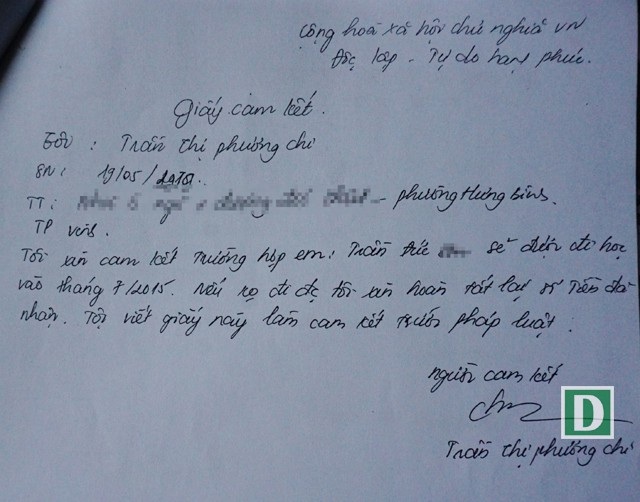 Cộng hoà xã hội chủ nghĩa VN
Độc lập - Tự do hạnh phúc.
Giấy cam kết.
Tôi : Trần thị phương chi
SN: 19/05/
TT: - phường Hưng Bình.
TP vinh.
Tôi xin cam kết trường hợp em: Trần đức sẽ được đi học
vào tháng 7/2015. Nếu ko đi đc tôi xin hoàn tất lại số Tiền đã
nhận. Tôi viết giấy này làm cam kết trước pháp luật.
người cam kết
D
Trần thị phương chi